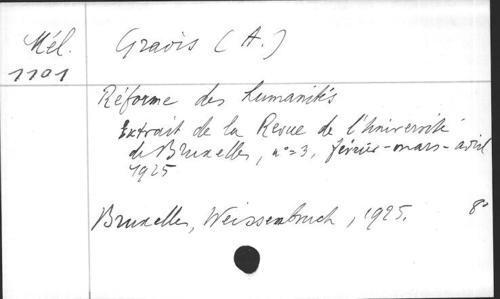 Mél. Gravis (A.)
1101
Réforme des humanités
Extrait de la Revue de l'Université
de Bruxelles, n°=3, février-mars-avril
1925
Bruxelles, Weissenbruch, 1925. 8°